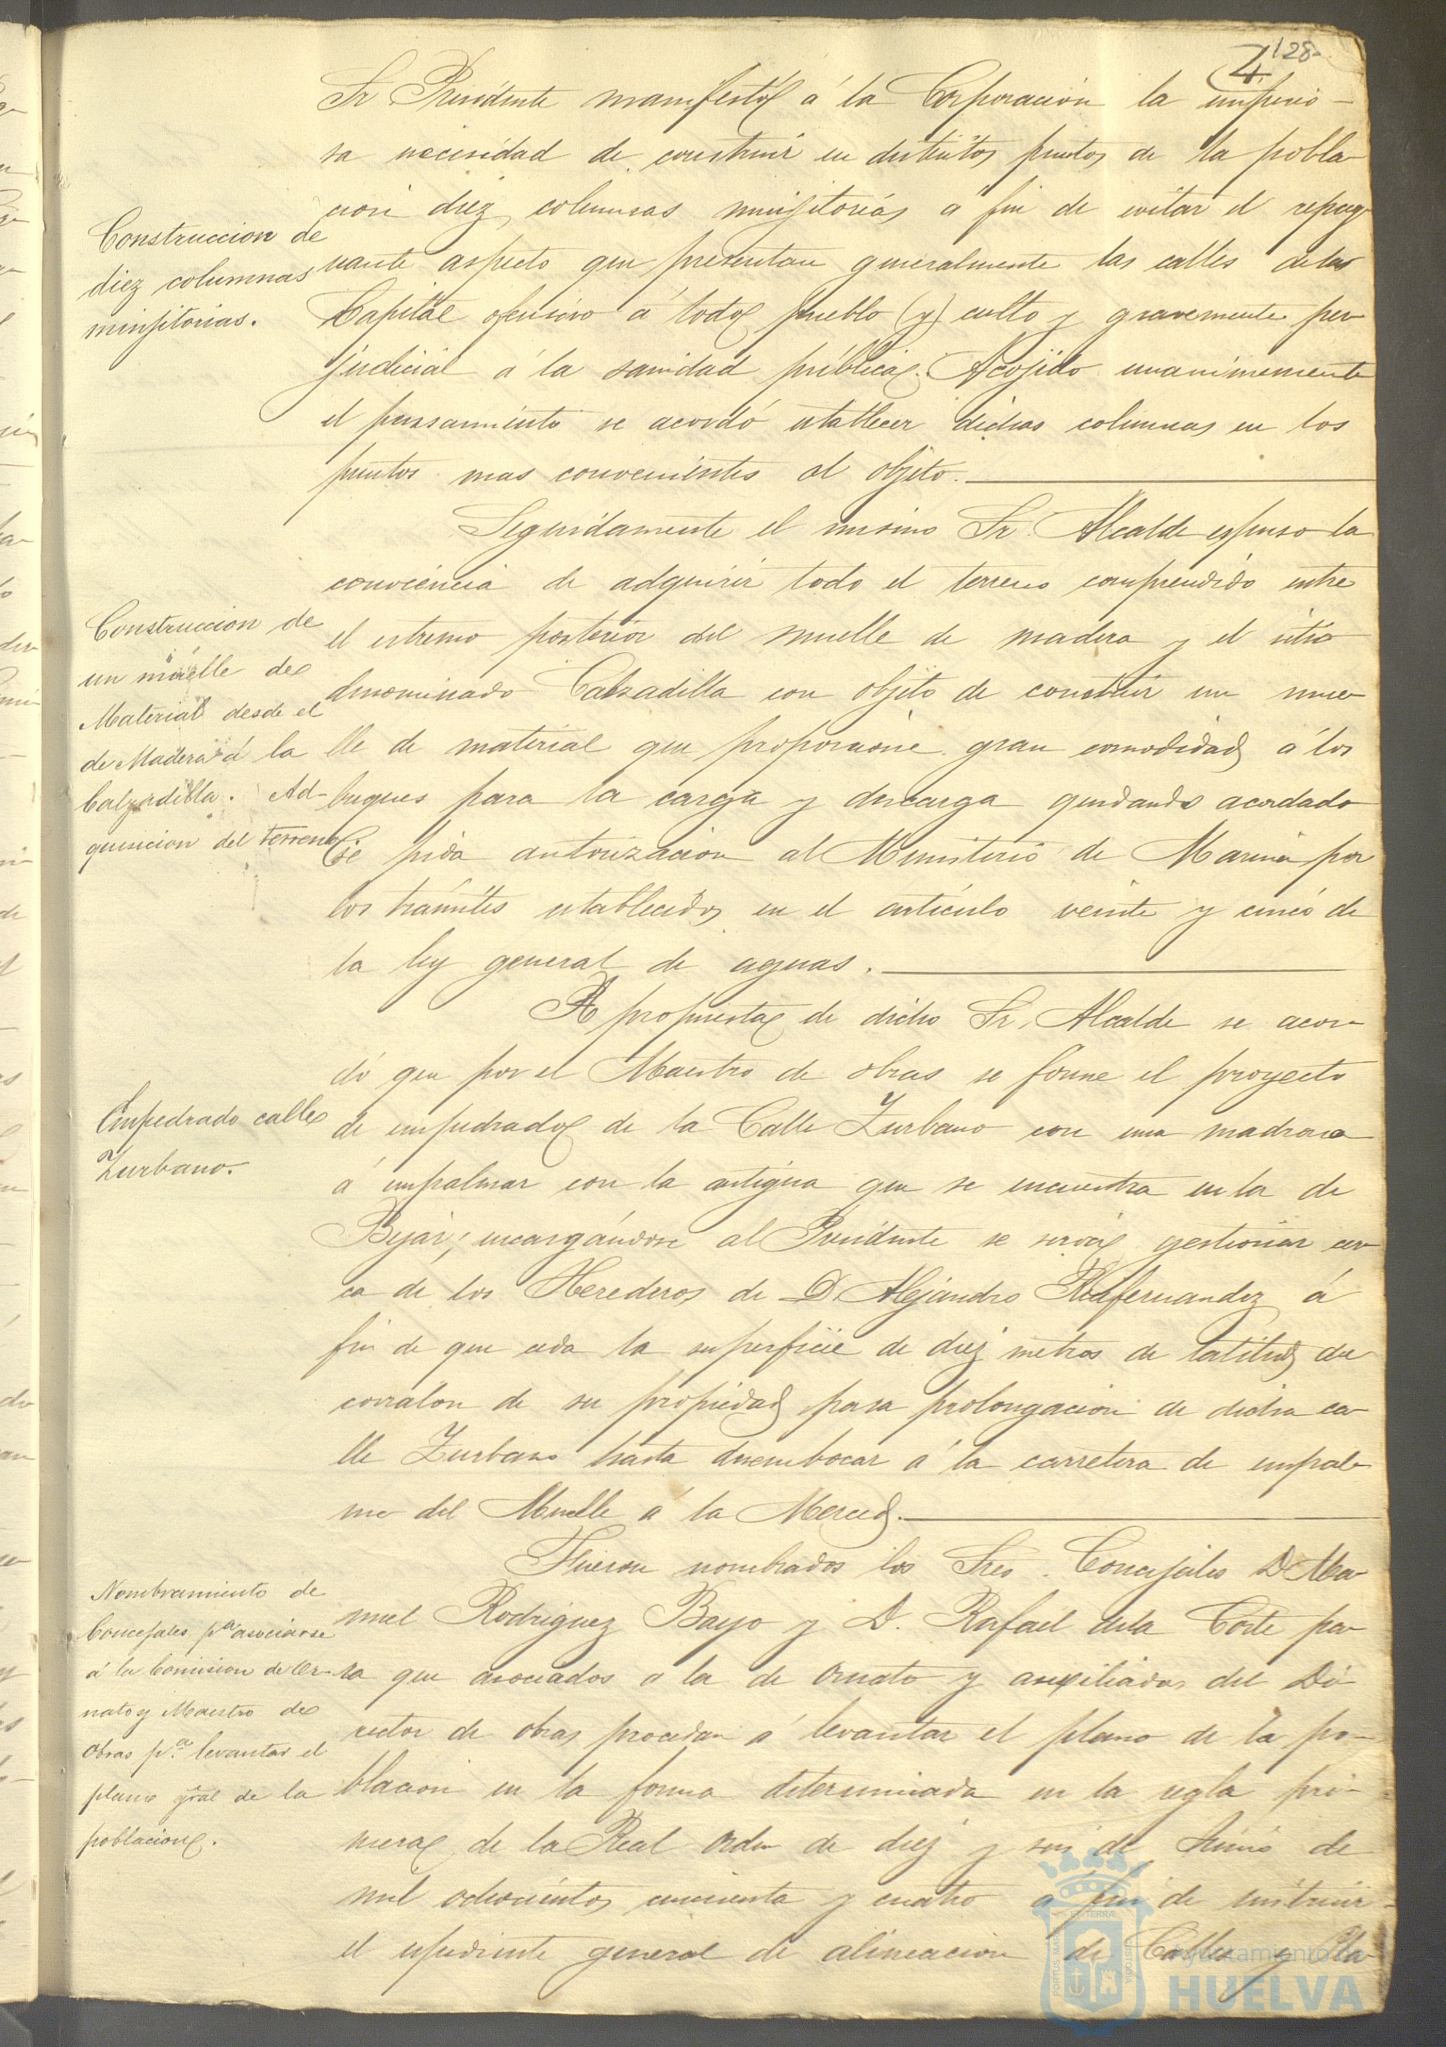 128
4
Sr. Presidente manifestó á la Corporación la imperio-
sa necesidad de construir en distintos puntos de la pobla-
cion diez columnas minjitorias a fin de evitar el repug-
nante aspecto que presentan generalmente las calles de la
Capital ofensivo á todo pueblo (y) culto y gravemente per-
judicial á la sanidad pública. Acojido unanimemente
el pensamiento se acordó establecer dichas columnas en los
puntos mas convenientes al objeto.
Construccion de
diez columnas
minjitorias.
Seguidamente el mismo Sr. Alcalde espuso la
conveniencia de adquirir todo el terreno comprendido entre
el estremo posterior del muelle de madera y el sitio
denominado Calzadilla con objeto de construir un mue-
lle de material que proporcione gran comodidad á los
buques para la carga y descarga quedando acordado
se pida autorizacion al Ministerio de Marina por
los trámites establecidos en el artículo veinte y cinco de
la ley general de aguas.
Construccion de
un muelle de
Material desde el
de Madera á la
Calzadilla. Ad-
quisicion del terreno
A propuesta de dicho Sr. Alcalde se acor-
dó que por el Maestro de obras se forme el proyecto
de empedrado de la Calle Zurbano con una madrona
á empalmar con la antigua que se encuentra en la de
Bejar; encargándose al Presidente se sirva gestionar cer-
ca de los Herederos de D. Alejandro Plafernandez á
fin de que ceda la superficie de diez metros de latitud del
corralon de su propiedad para prolongacion de dicha ca-
lle Zurbano hasta desembocar á la carretera de empal-
me del Muelle á la Merced.
Empedrado calle
Zurbano.
Fueron nombrados los Sres. Concejales D. Ma-
nuel Rodriguez Bayo y D. Rafael de la Corte pa-
ra que asociados a la de Ornato y auxiliados del Di-
rector de obras procedan á levantar el plano de la po-
blacion en la forma determinada en la regla pri-
mera de la Real orden de diez y seis de Junio de
mil ochocientos cincuenta y cuatro a fin de instruir
el espediente general de alineacion de Calles y Pla-
Nombramiento de
Concejales pª asociarse
á la Comision de Or-
nato y Maestro de
Obras pª levantar el
plano gral de la
poblacion.
Ayuntamiento de
HUELVA